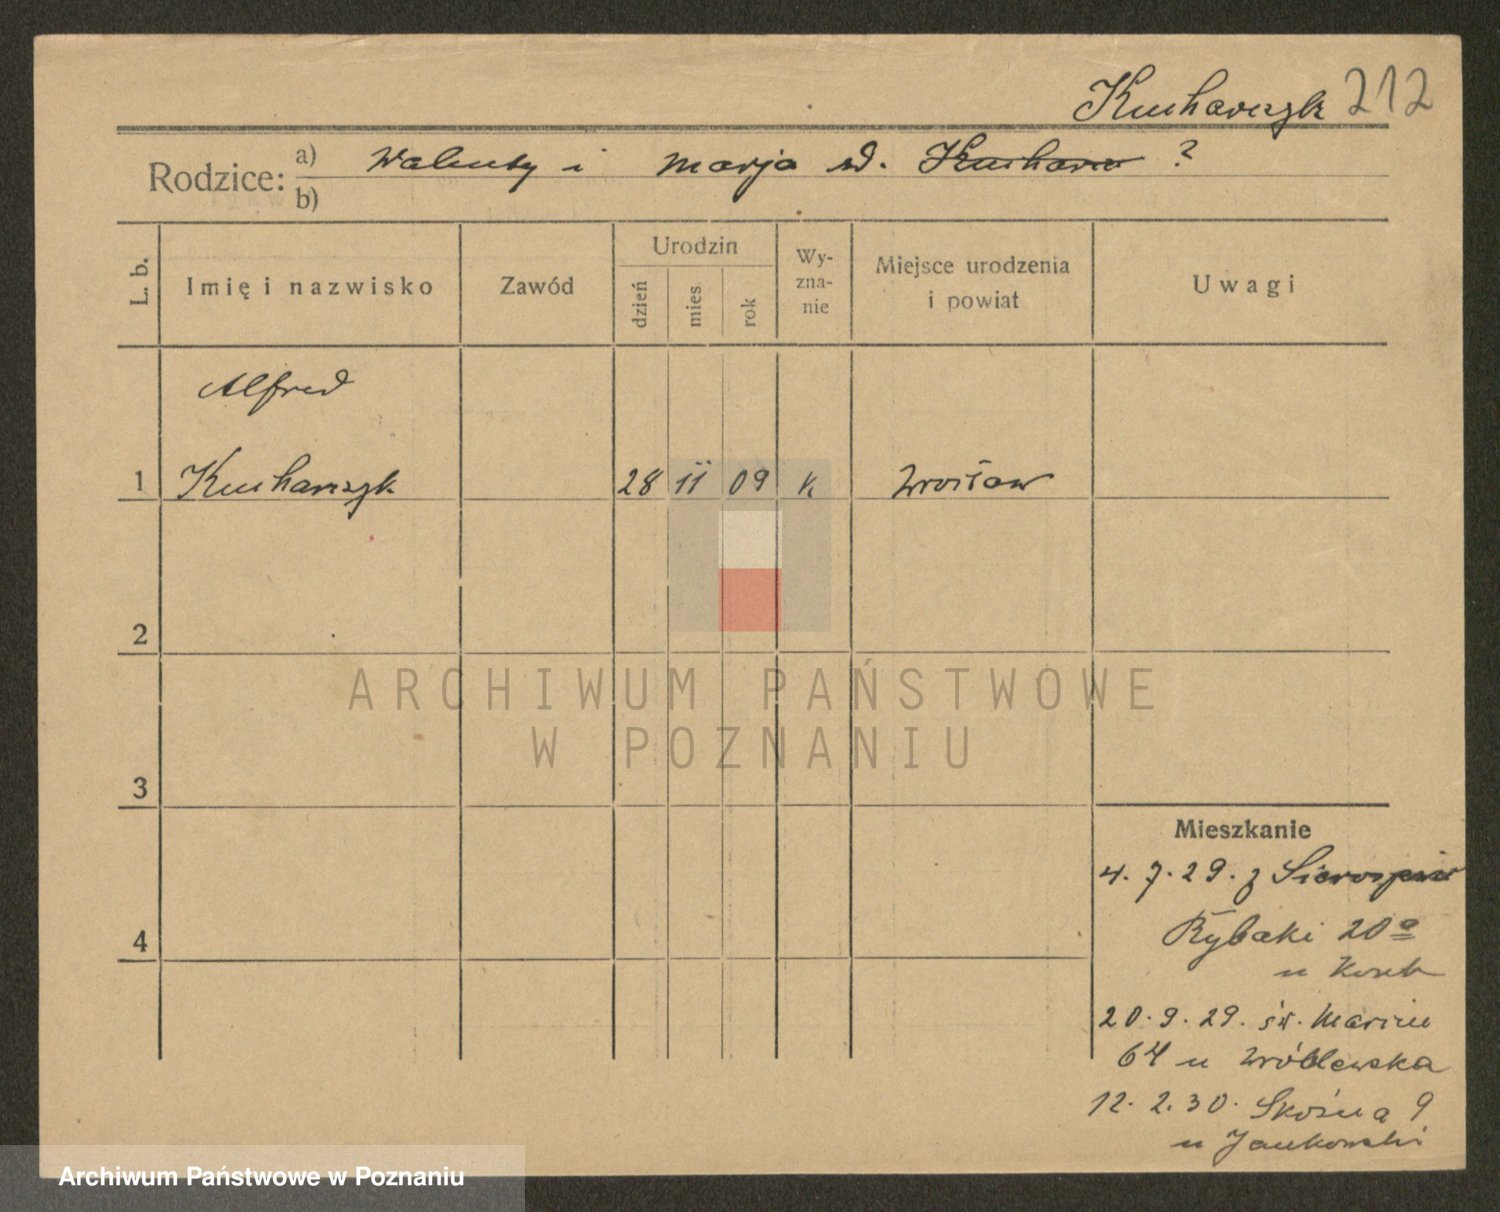 Kucharczyk 212
Rodzice: a) Walenty i Marja zd. Kucharcz ?
b)
L. b.
Imię i nazwisko
Zawód
Urodzin
dzień
mies.
rok
Wy-
zna-
nie
Miejsce urodzenia
i powiat
Uwagi
Alfred
1 Kucharczyk 28 11 09 k Wrocław
2
3
4
Mieszkanie
4.7.29. z
Rybaki 20a
u
20.9.29. św. Marcin
64 u Wróblewska
12.2.30. Skośna 9
u Jankowski
ARCHIWUM PAŃSTWOWE
W POZNANIU
Archiwum Państwowe w Poznaniu